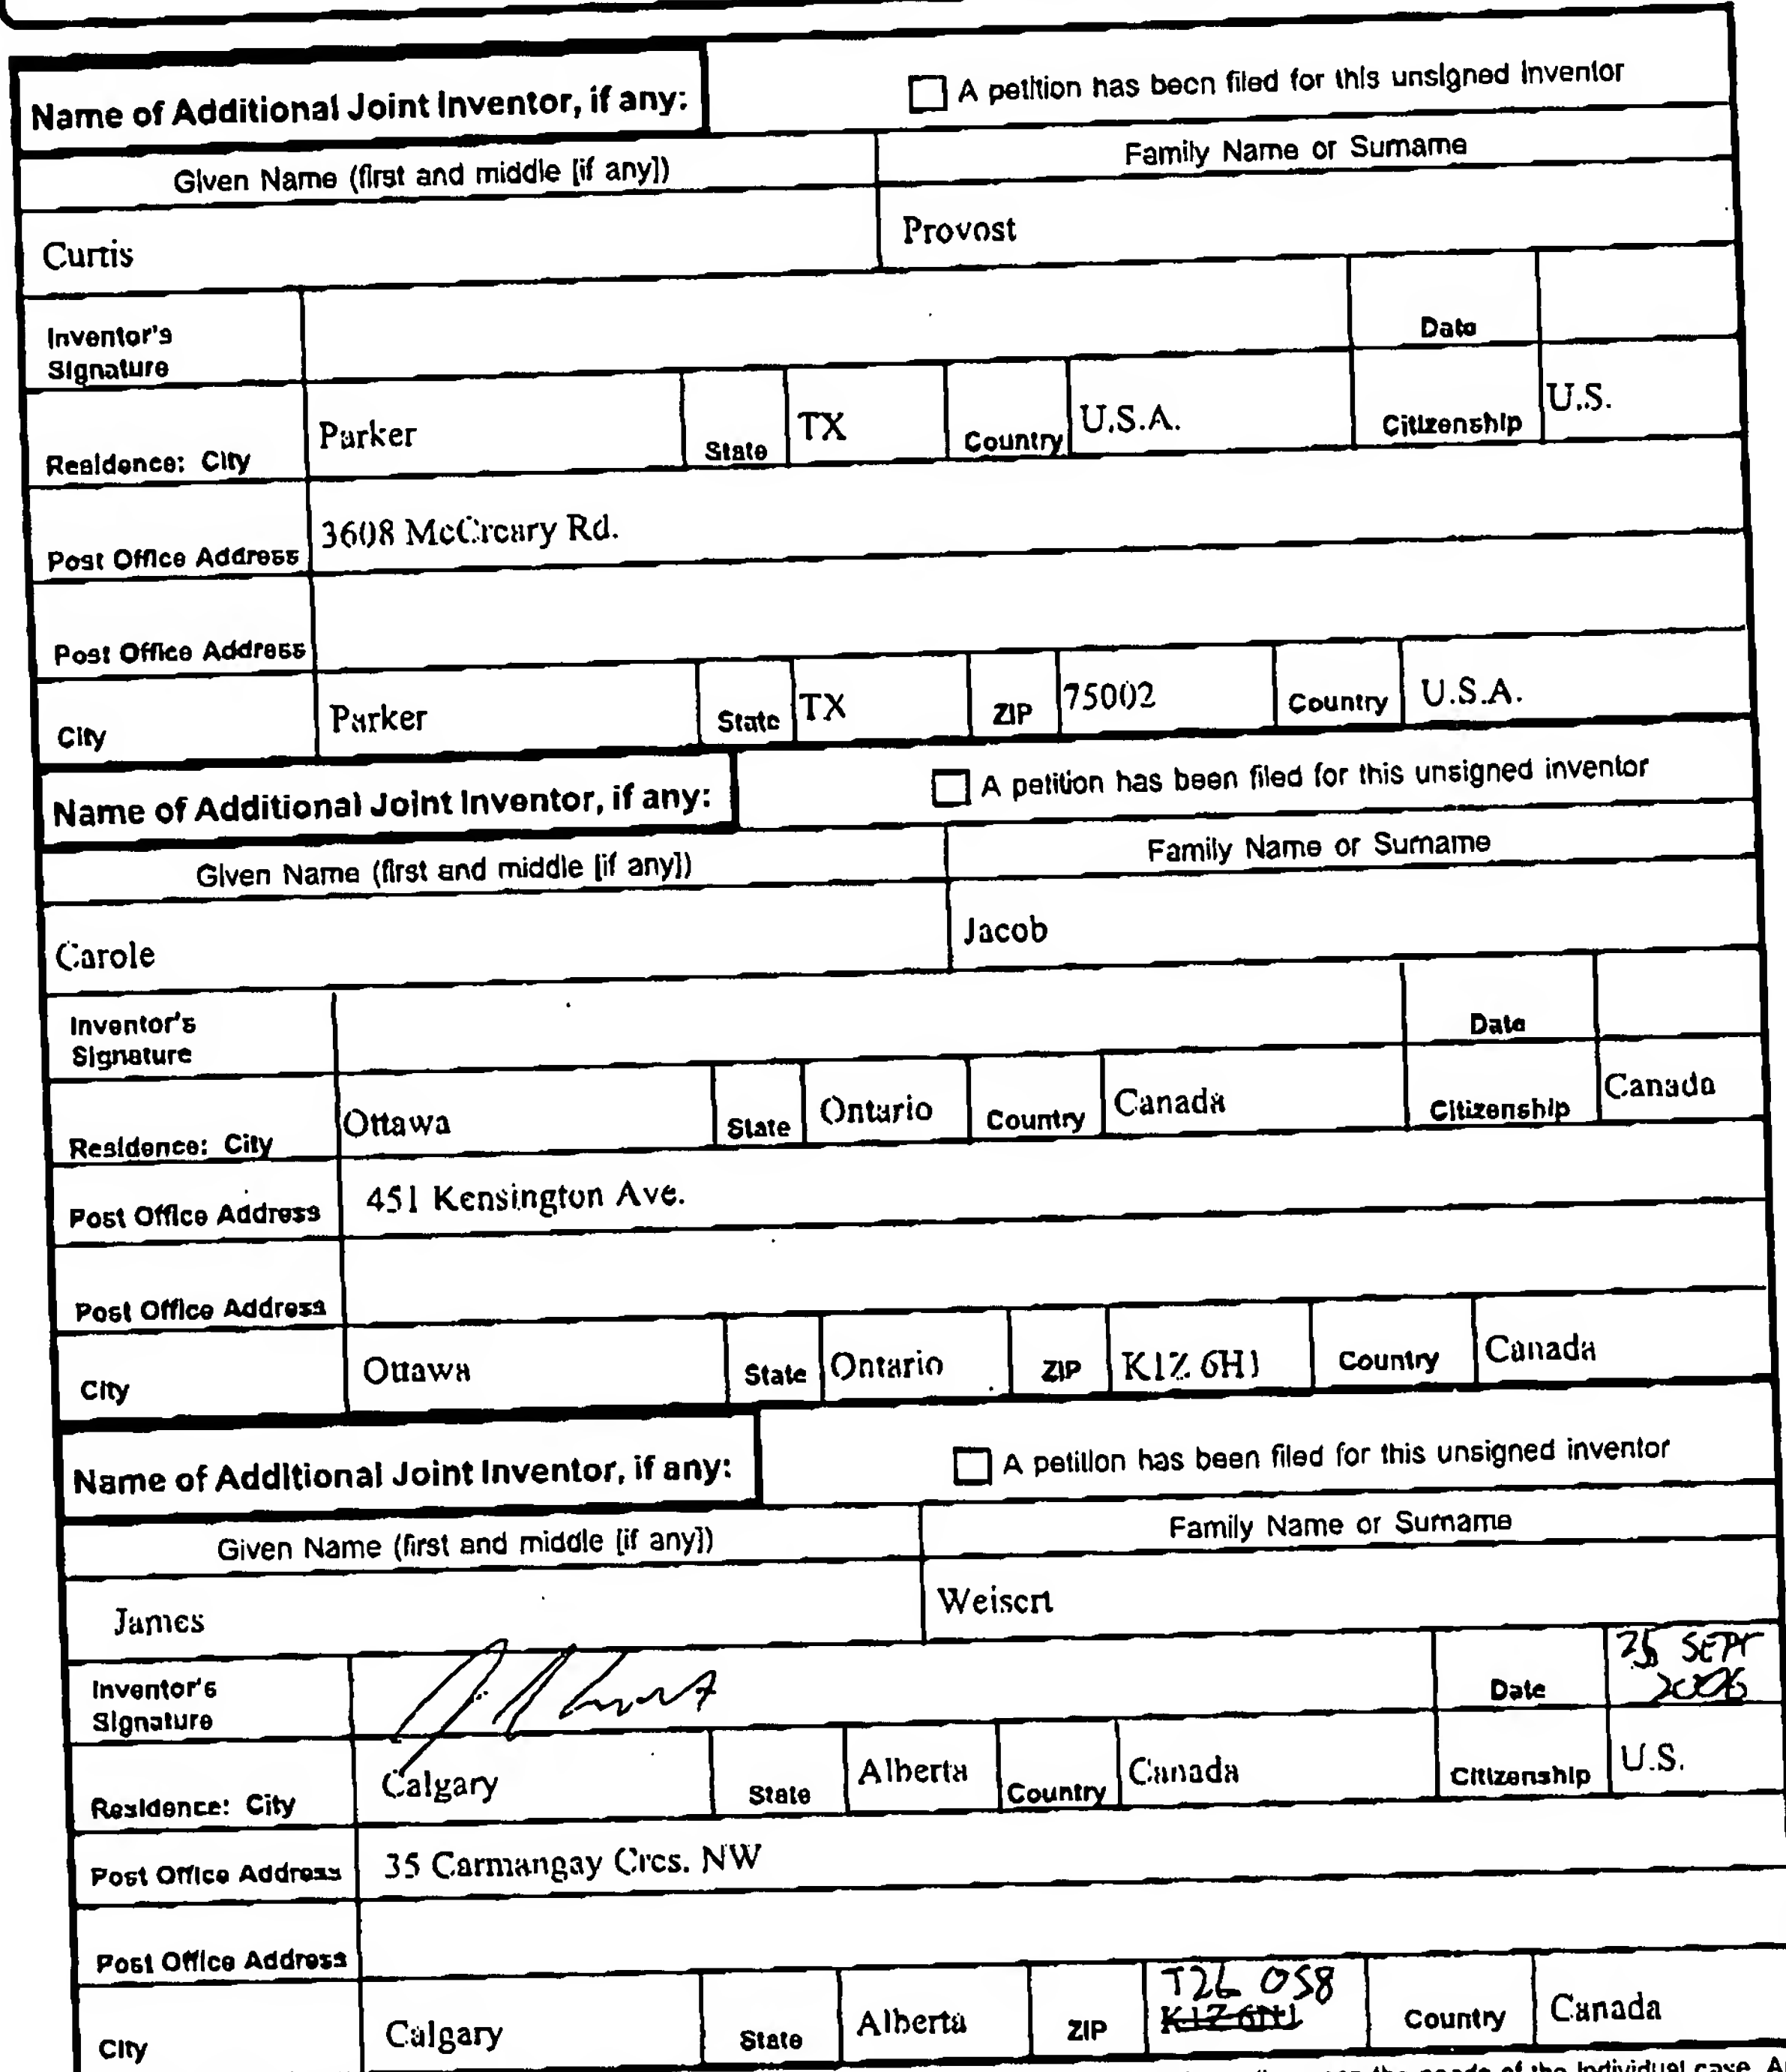 Name of Additional Joint Inventor, if any: ☐ A petition has been filed for this unsigned inventor
Given Name (first and middle [if any]) Family Name or Surname
Curtis Provost
Inventor's Signature Date
Residence: City Parker State TX Country U.S.A. Citizenship U.S.
Post Office Address 3608 McCreary Rd.
Post Office Address
City Parker State TX ZIP 75002 Country U.S.A.
Name of Additional Joint Inventor, if any: ☐ A petition has been filed for this unsigned inventor
Given Name (first and middle [if any]) Family Name or Surname
Carole Jacob
Inventor's Signature Date
Residence: City Ottawa State Ontario Country Canada Citizenship Canada
Post Office Address 451 Kensington Ave.
Post Office Address
City Ottawa State Ontario ZIP K1Z 6H1 Country Canada
Name of Additional Joint Inventor, if any: ☐ A petition has been filed for this unsigned inventor
Given Name (first and middle [if any]) Family Name or Surname
James Weisert
Inventor's Signature Date SEPT
Residence: City Calgary State Alberta Country Canada Citizenship U.S.
Post Office Address 35 Carmangay Cres. NW
Post Office Address
City Calgary State Alberta ZIP Country Canada
of the individual case. A